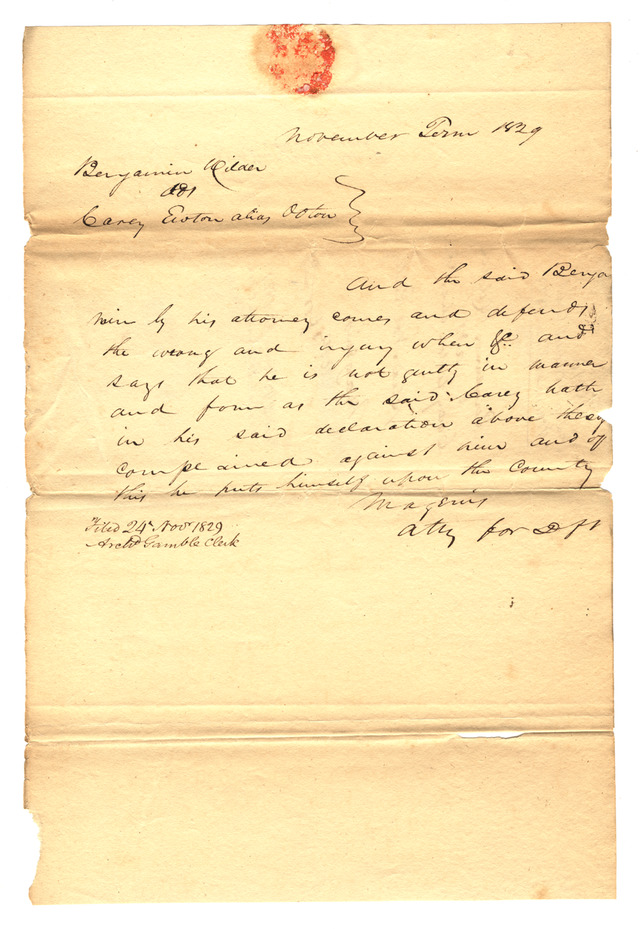 November Term 1829
Benjamin Wilder
ads
Carey Ewton alias Orton
And the said Benja
min by his attorney comes and defends
the wrong and injury when &c. and
says that he is not guilty in manner
and form as the said Carey hath
in his said declaration above thereof
complained against him and of
this he puts himself upon the County
Magenis
atty for Dft
Filed 24th Novr 1829
Archd Gamble Clerk